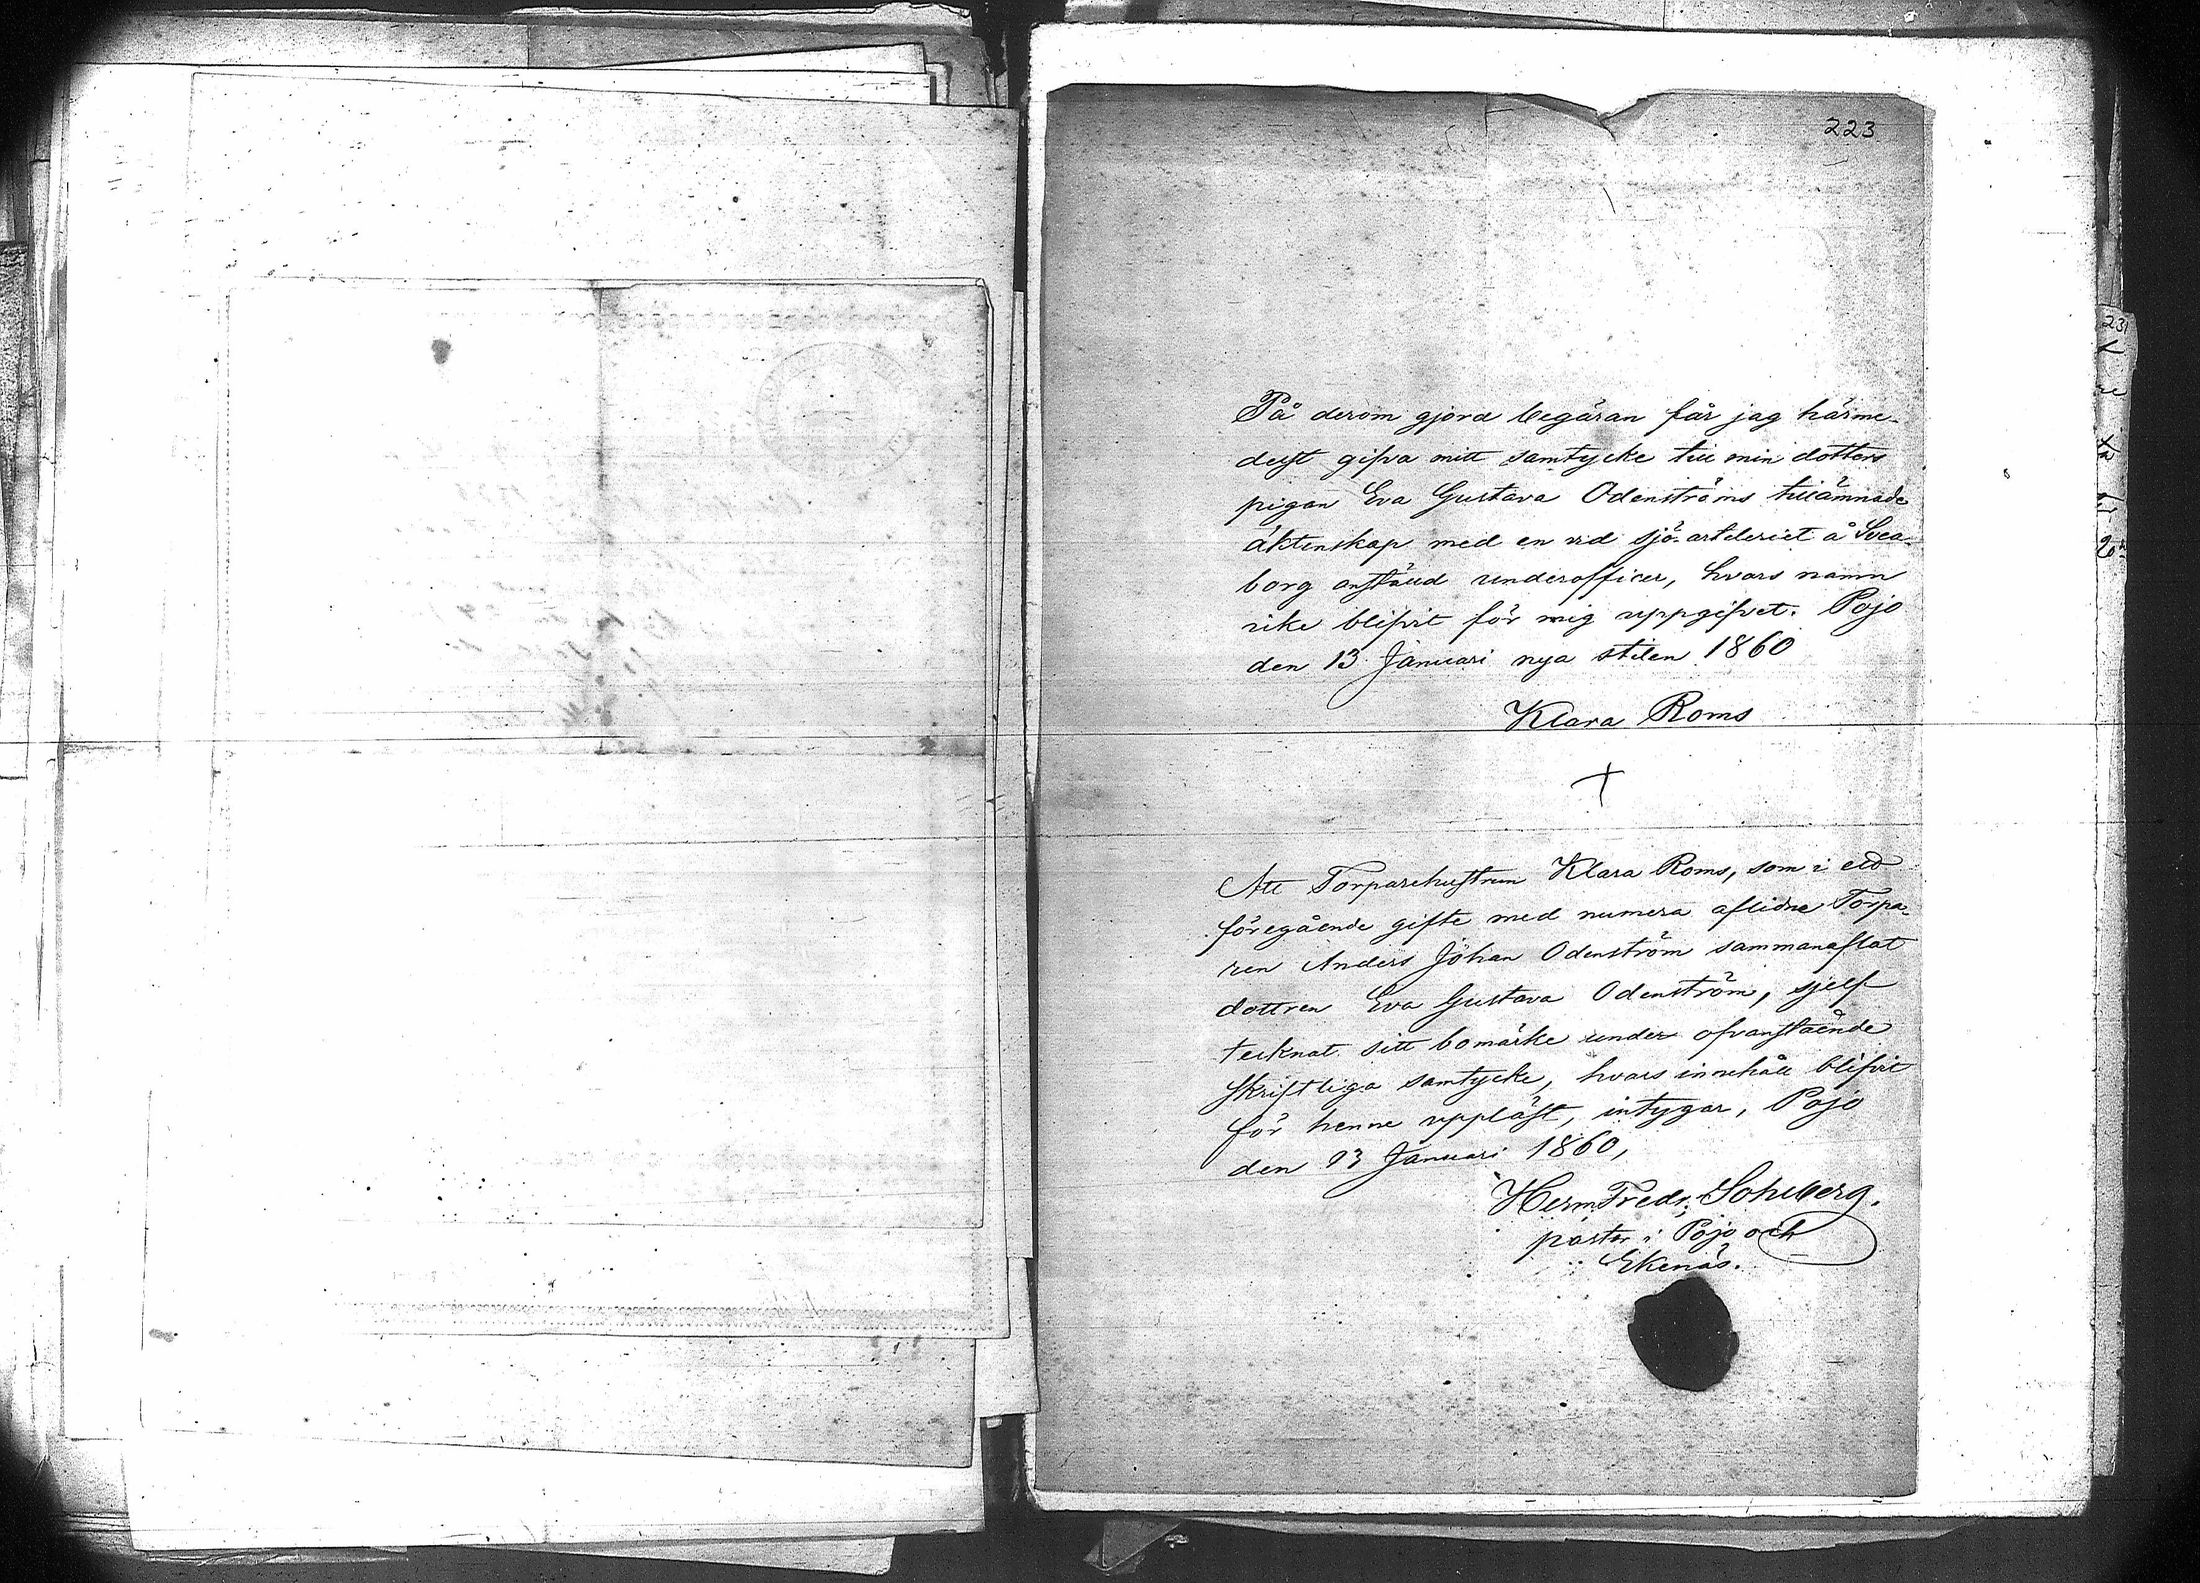 223
På derom gjord begäran får jag härme-
delst gifva mitt samtycke till min dotters
pigan Eva Gustava Odenströms tillämnade
äktenskap med en vid sjö-artileriet å Svea-
borg anstäld underofficer, hvars namn
icke blifvit för mig uppgifvet. Pojo
den 13 Januari nya stilen 1860
Klara Roms
Att Torparehustrun Klara Roms, som i ett
föregående gifte med numera aflidne Torpa-
ren Anders Johan Odenström sammanaflat
dottren Eva Gustava Odenström, sjelf
tecknat sitt bomärke under ofvanstående
skriftliga samtycke, hvars innehåll blifvit
för henne uppläst, intygar, Pojo
den 13 Januari 1860,
Herm. Fredr. Sohlberg.
pastor i Pojo och
Ekenäs.
231